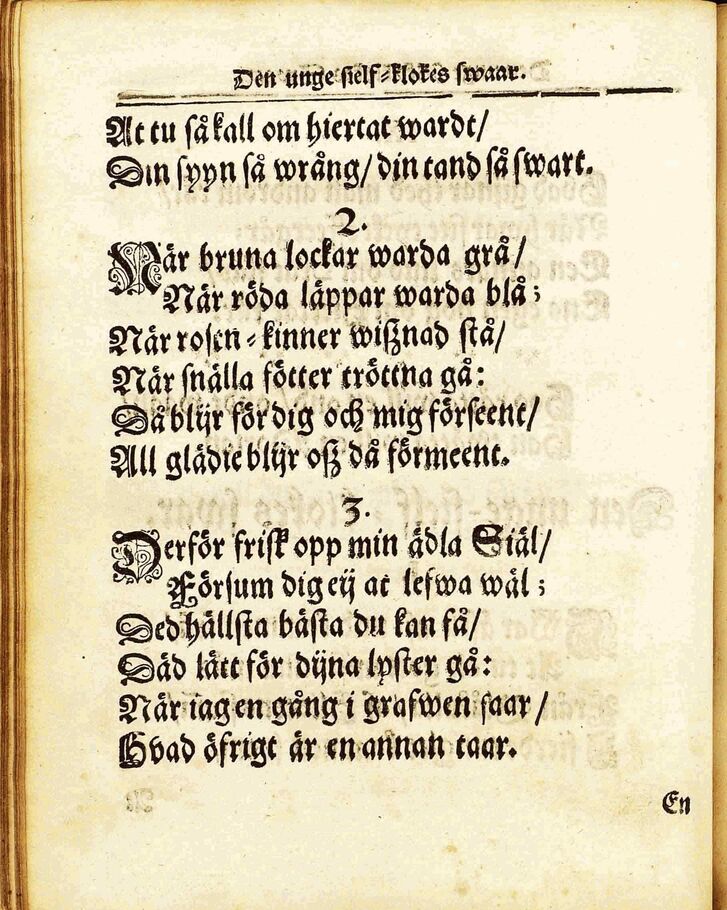 Den unge sielf-klokes swaar.
At tu så kall om hiertat wardt/
Din syyn så wrång/ din tand så swart.
2.
När bruna lockar warda grå/
När röda läppar warda blå;
När rosen-kinner wißnad stå/
När snälla fötter tröttna gå:
Då blijr för dig och mig förseent/
All glädie blijr oß då förmeent.
3.
Derför frisk opp min ädla Siäl/
Försum dig eij at lefwa wäl;
Ded hällsta bästa du kan få/
Däd lätt för dijna lyster gå:
När iag en gång i grafwen faar/
Hvad öfrigt är en annan taar.
En